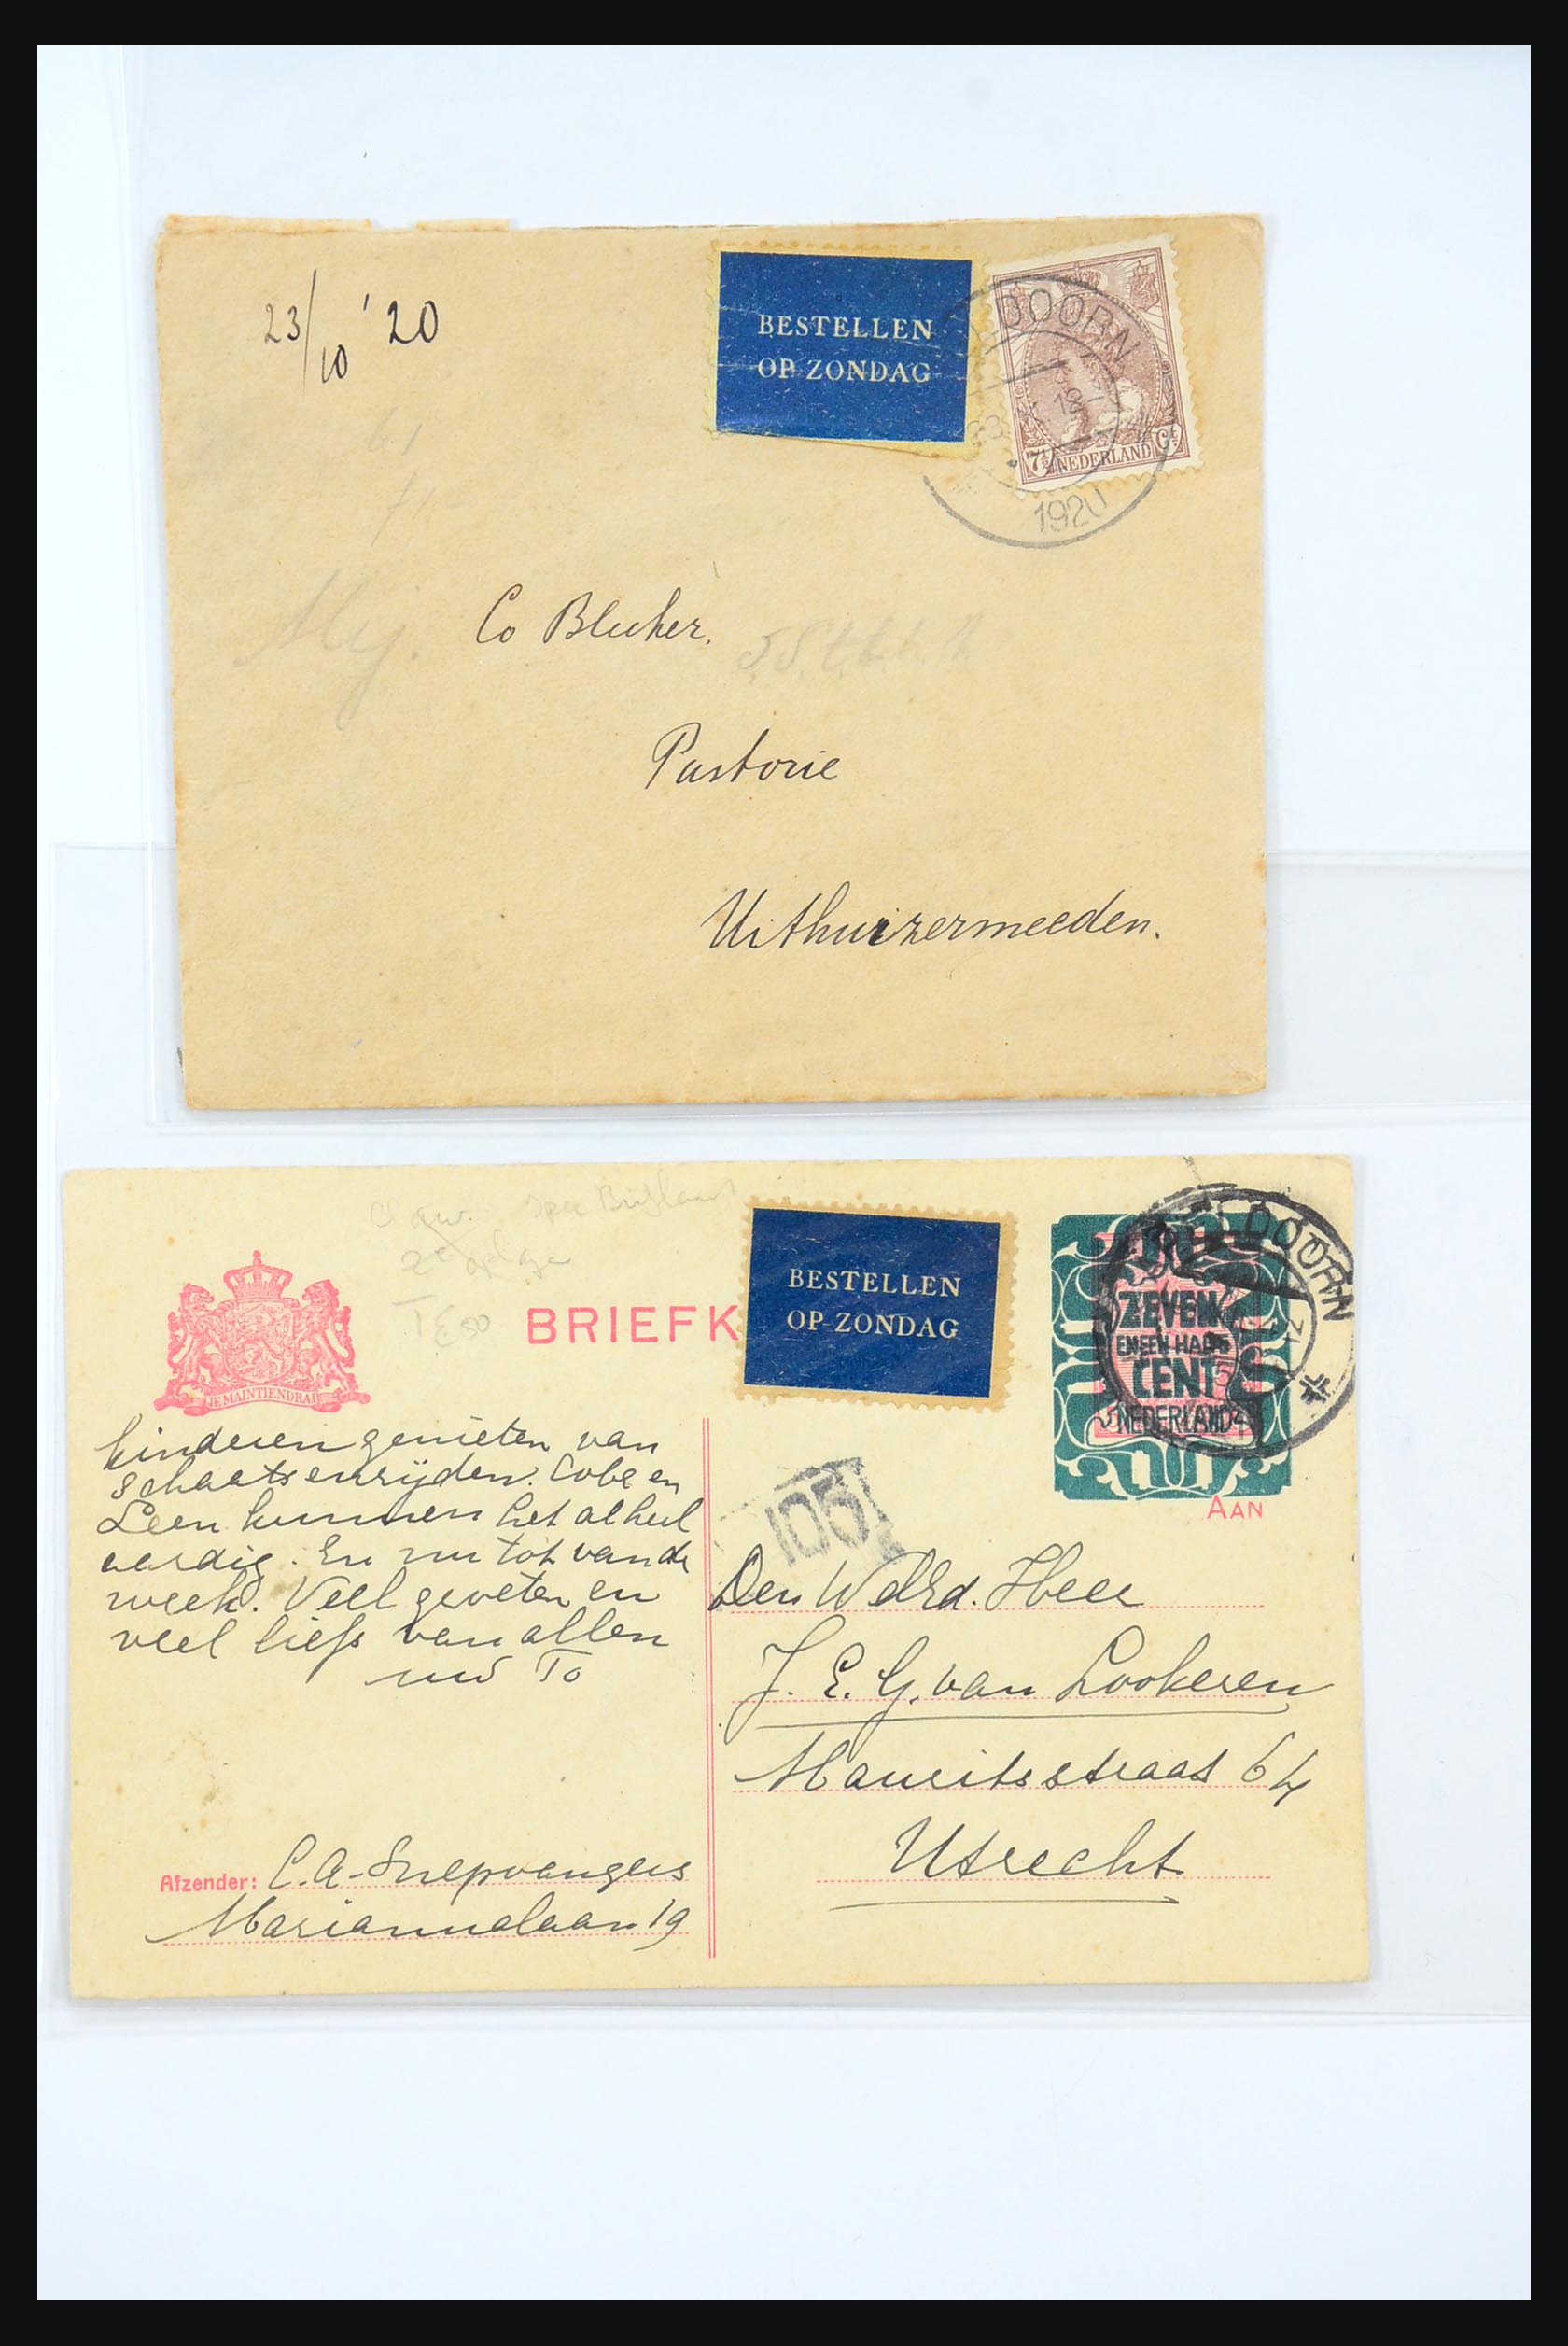 23/10 '20
BESTELLEN
OP ZONDAG
DOORN
7½ NEDERLAND Ct
1920
Co Blecker.
Pastorie
Uithuizermeeden.
2e oplage
JE MAINTIENDRAI
BRIEFK
BESTELLEN
OP ZONDAG
ELDOORN
ZEVEN
EN EEN HALF
CENT
NEDERLAND
AAN
105
kinderen genieten van
schaatsenrijden. Cobe en
Leen kunnen het al heel
aardig. En nu tot van de
week. Veel groeten en
veel liefs van allen
uw To
Den WelEd. Heer
J. E. G. van Lookeren
Mauritsstraat 64
Utrecht
Afzender: C. A. Snepvangers
Mariannelaan 19